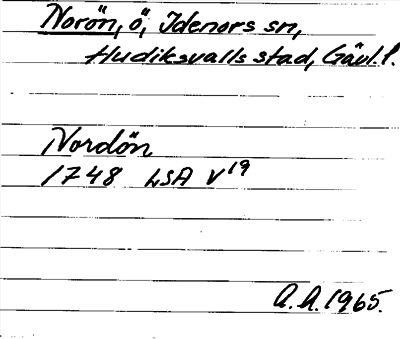 Norön, ö, Idenors sn,
Hudiksvalls stad, Gävl. l.
Nordön
1748 LSA V¹⁹
A.A. 1965.